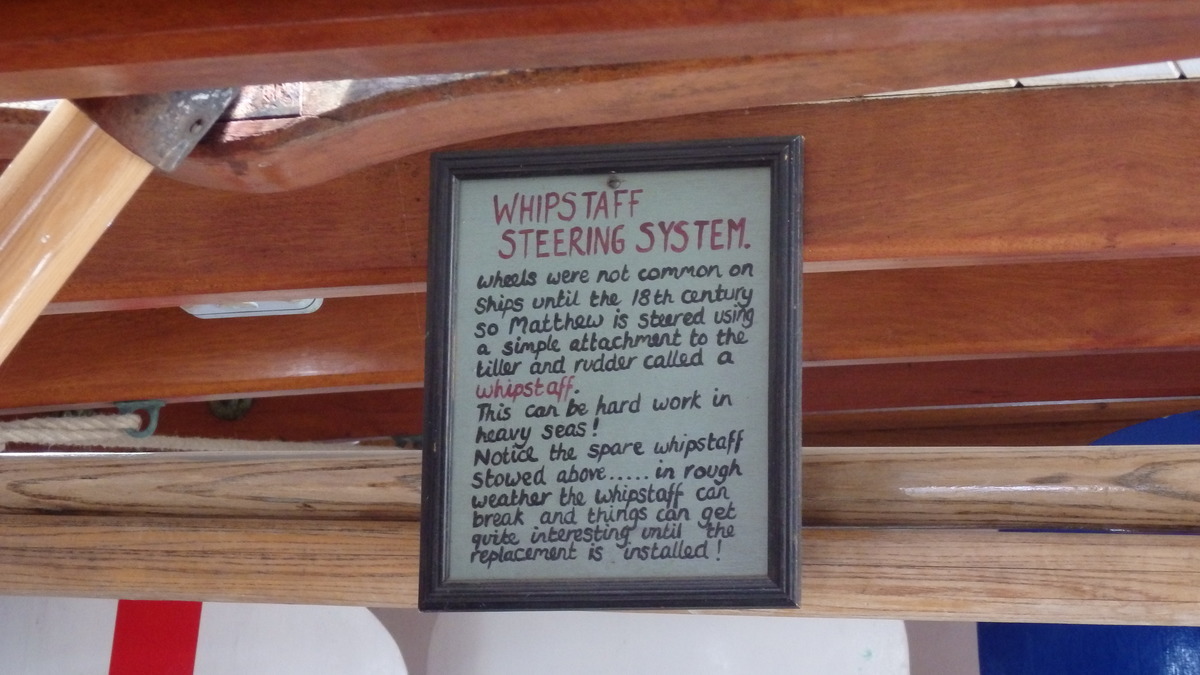 WHIPSTAFF
STEERING SYSTEM.
wheels were not common on
ships until the 18th century
so Matthew is steered using
a simple attachment to the
tiller and rudder called a
whipstaff.
This can be hard work in
heavy seas!
Notice the spare whipstaff
stowed above..... in rough
weather the whipstaff can
break and things can get
quite interesting until the
replacement is installed!